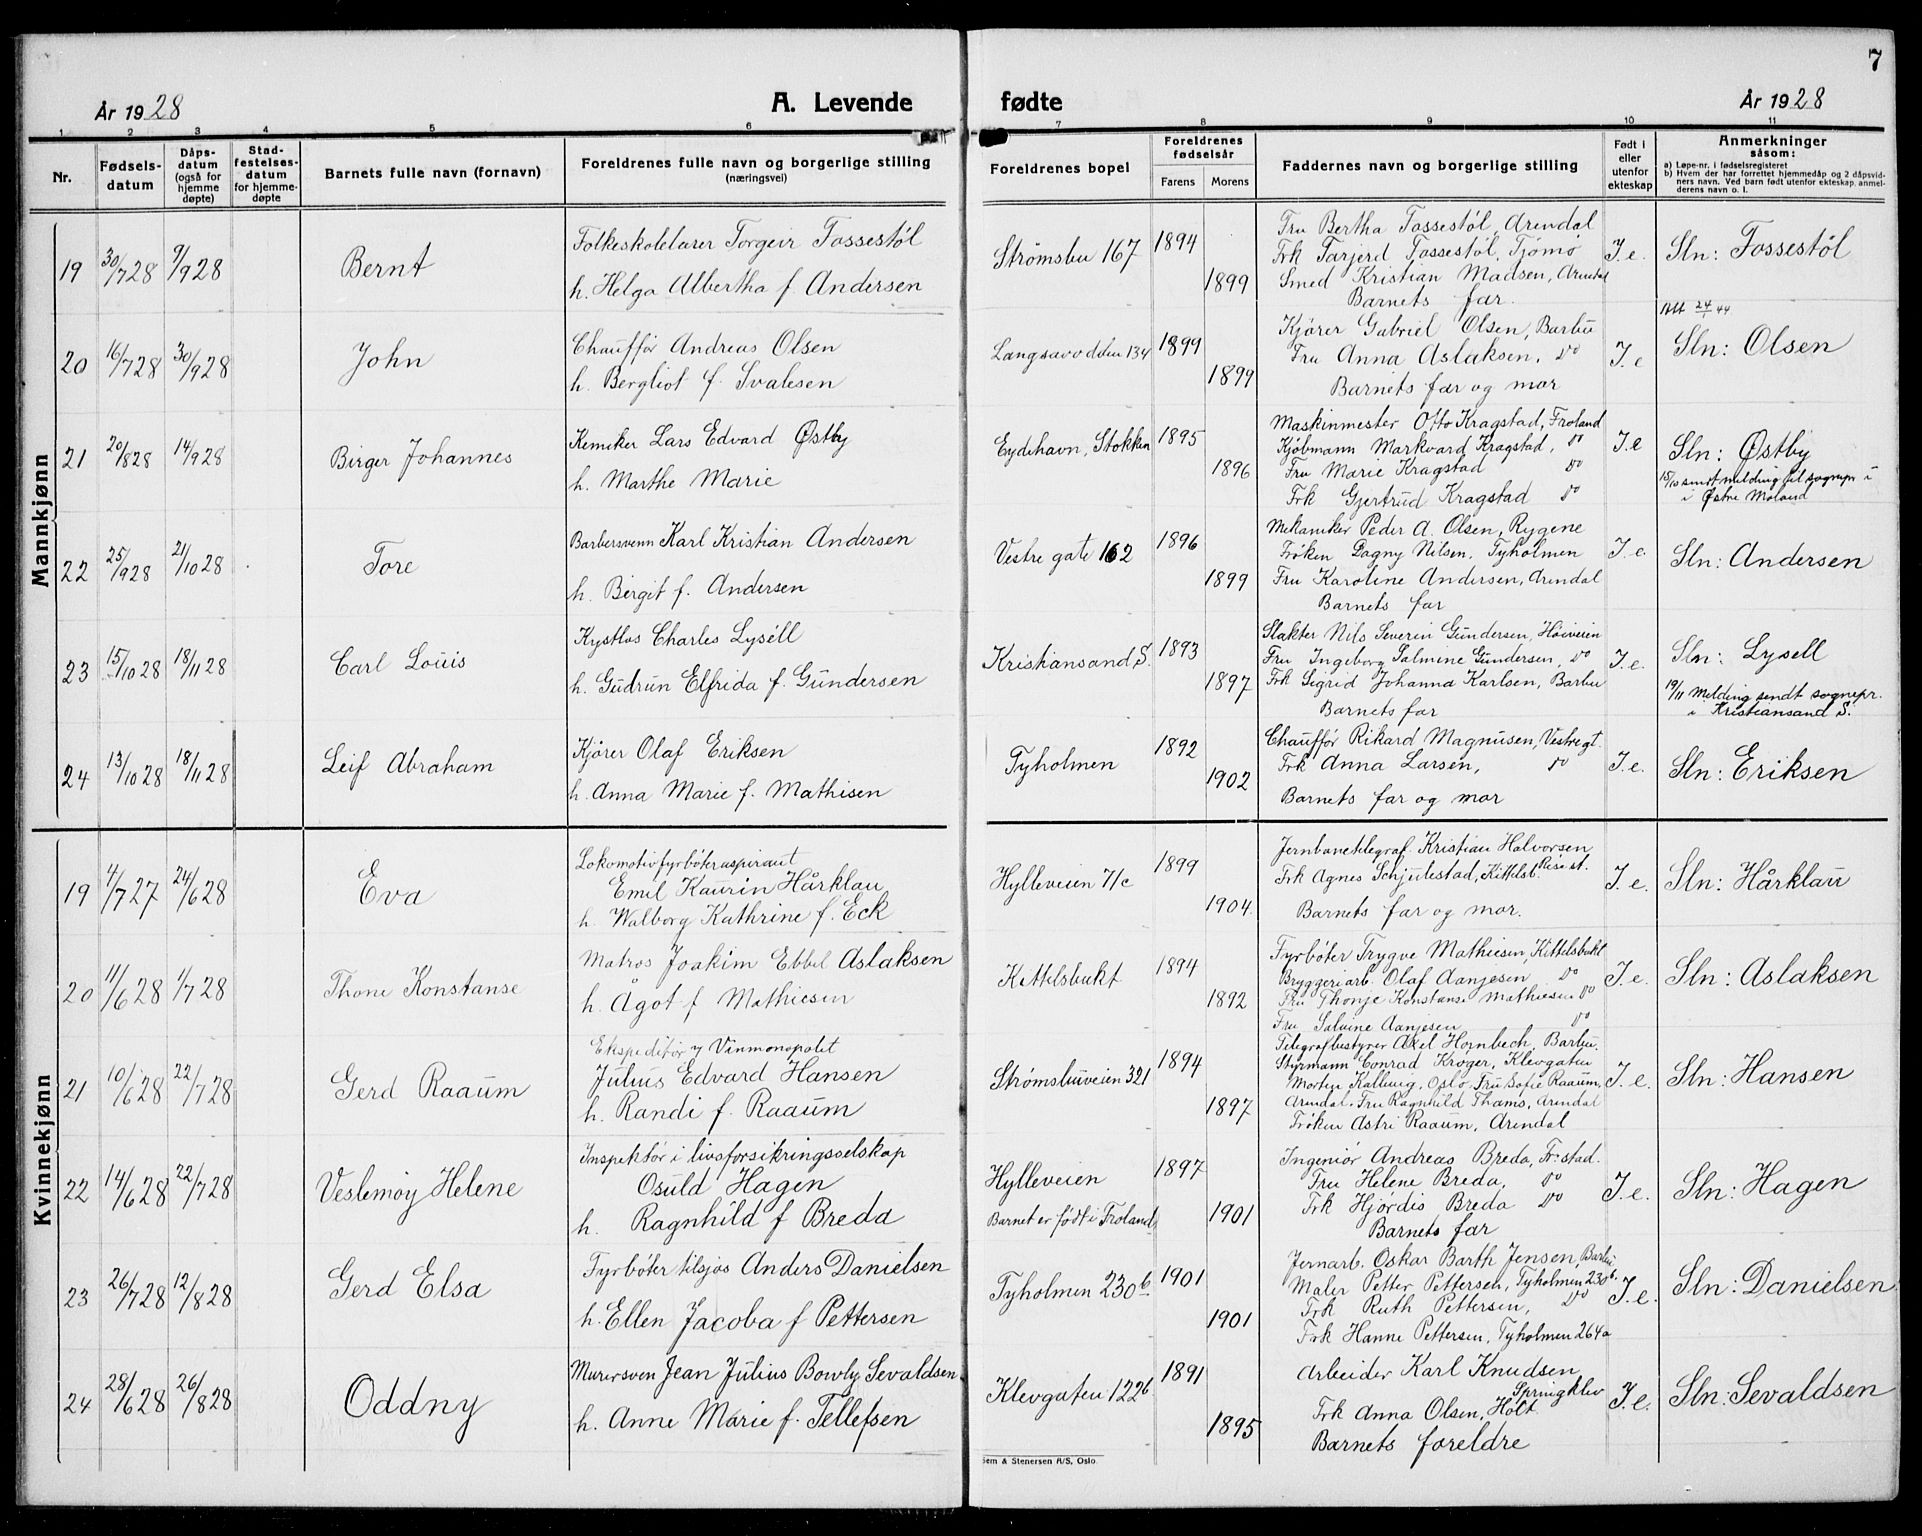 7
År 1928
A. Levende fødte
År 1928
1 2 3 4 5 6 7 8 9 10 11
Nr.
Fødsels-
datum
Dåps-
datum
(også for
hjemme
døpte)
Stad-
festelses-
datum
for hjemme-
døpte
Barnets fulle navn (fornavn)
Foreldrenes fulle navn og borgerlige stilling
(næringsvei)
Foreldrenes bopel
Foreldrenes
fødselsår
Farens Morens
Faddernes navn og borgerlige stilling
Født i
eller
utenfor
ekteskap
Anmerkninger
såsom:
a) Løpe-nr. i fødselsregisteret
b) Hvem der har forrettet hjemmedåp og 2 dåpsvid-
ners navn. Ved barn født utenfor ekteskap, anmel-
derens navn o. l.
Mannkjønn
19 30/7 28 9/9 28 Bernt
Folkeskolelærer Torgeir Fossestøl
h. Helga Albertha f. Andersen
Strømsbu 167 1894 1899
Fru Bertha Fossestøl, Arendal
Frk Tarjerd Fossestøl, Tjømø
Smed Kristian Madsen, Arendal
Barnets far.
I e. Sln: Fossestøl
20 16/7 28 30/9 28 John
Chauffør Andreas Olsen
h. Bergliot f. Svalesen
Langsævodden 134 1899 1899
Kjører Gabriel Olsen, Barbu
Fru Anna Aslaksen, do
Barnets far og mor
I. e
Att 24/1 44
Sln: Olsen
21 20/8 28 14/9 28 Birger Johannes
Kemiker Lars Edvard Østby
h. Marthe Marie
Eydehavn, Stokken 1895 1896
Maskinmester Otto Kragstad, Froland
Kjøbmann Markvard Kragstad, do
Fru Marie Kragstad do
Frk Gjertrud Kragstad do
I. e
Sln: Østby
15/10 sendt melding til sognepr i
i Østre Moland
22 25/9 28 21/10 28 Tore
Barbersvenn Karl Kristian Andersen
h. Birgit f. Andersen
Vestre gate 162 1896 1899
Mekaniker Peder A. Olsen, Rygene
Frøken Dagny Nilsen, Tyholmen
Fru Karoline Andersen, Arendal
Barnets far
I. e. Sln: Andersen
23 15/10 28 18/11 28 Carl Louis
Kystlos Charles Lysell
h. Gudrun Elfrida f. Gundersen
Kristiansand S. 1893 1897
Slakter Nils Severin Gundersen, Høiveien
Fru Ingeborg Salmine Gundersen, do
Frk Sigrid Johanna Karlsen, Barbu
Barnets far
I. e.
Sln: Lysell
19/11 Melding sendt sognepr.
i Kristiansand S.
24 13/10 28 18/11 28 Leif Abraham
Kjører Olaf Eriksen
h. Anna Marie f. Mathisen
Tyholmen 1892 1902
Chauffør Rikard Magnusen, Vestregt.
Frk Anna Larsen, do
Barnets far og mor
I. e. Sln: Eriksen
Kvinnekjønn
19 4/7 27 24/6 28 Eva
Lokomotivfyrbøteraspirant
Emil Kaurin Hårklau
h. Walborg Kathrine f. Eck
Hylleveien 7/c 1899 1904
Jernbanetelegraf. Kristian Halvorsen
Rise st.
Frk Agnes Schjulestad, Kittelsb
Barnets far og mor.
I. e. Sln: Hårklau
20 11/6 28 1/7 28 Thone Konstanse
Matros Joakim Ebbel Aslaksen
h. Ågot f Mathiesen
Kittelsbukt 1894 1892
Fyrbøter Trygve Mathiesen, Kittelsbukt
Bryggeriarb. Olaf Aanjesen do
Fru Thonje Konstanse Mathiesen do
Fru Salvine Aanjesen do
I. e. Sln: Aslaksen
21 10/6 28 22/7 28 Gerd Raaum
Ekspeditør v Vinmonopolet
Julius Edvard Hansen
h. Randi f. Raaum
Strømsbuveien 321 1894 1897
Telegrafbestyrer Axel Hornbech, Barbu.
Styrmann Conrad Krøger, Klevgaten
Morten Kallevig, Oslo, Fru Sofie Raaum,
Arendal. Fru Ragnhild Thams, Arendal
Frøken Astri Raaum, Arendal
I. e. Sln: Hansen
22 14/6 28 22/7 28 Veslemøy Helene
Inspektør i livsforsikringsselskap
Osuld Hagen
h. Ragnhild f Breda
Hylleveien
Barnet er født i Froland
1897 1901
Ingeniør Andreas Breda, Fr.stad.
Fru Helene Breda, do
Frk Hjørdis Breda do
Barnets far
I. e. Sln: Hagen
23 26/7 28 12/8 28 Gerd Elsa
Fyrbøter tilsjøs Anders Danielsen
h. Ellen Jacoba f Pettersen
Tyholmen 230b 1901 1901
Jernarb. Oskar Barth Jensen, Barbu
Maler Petter Pettersen, Tyholmen 230b.
Frk Ruth Pettersen, do
Frk Hanne Pettersen, Tyholmen 264a
I. e. Sln: Danielsen
24 28/6 28 26/8 28 Oddny
Murersven Jean Julius Bowly Sevaldsen
h. Anne Marie f. Tellefsen
Klevgaten 122b 1891 1895
Arbeider Karl Knudsen
Springklev
Frk Anna Olsen, Holt
Barnets foreldre
I. e. Sln: Sevaldsen
Sem & Stenersen A/S, Oslo.